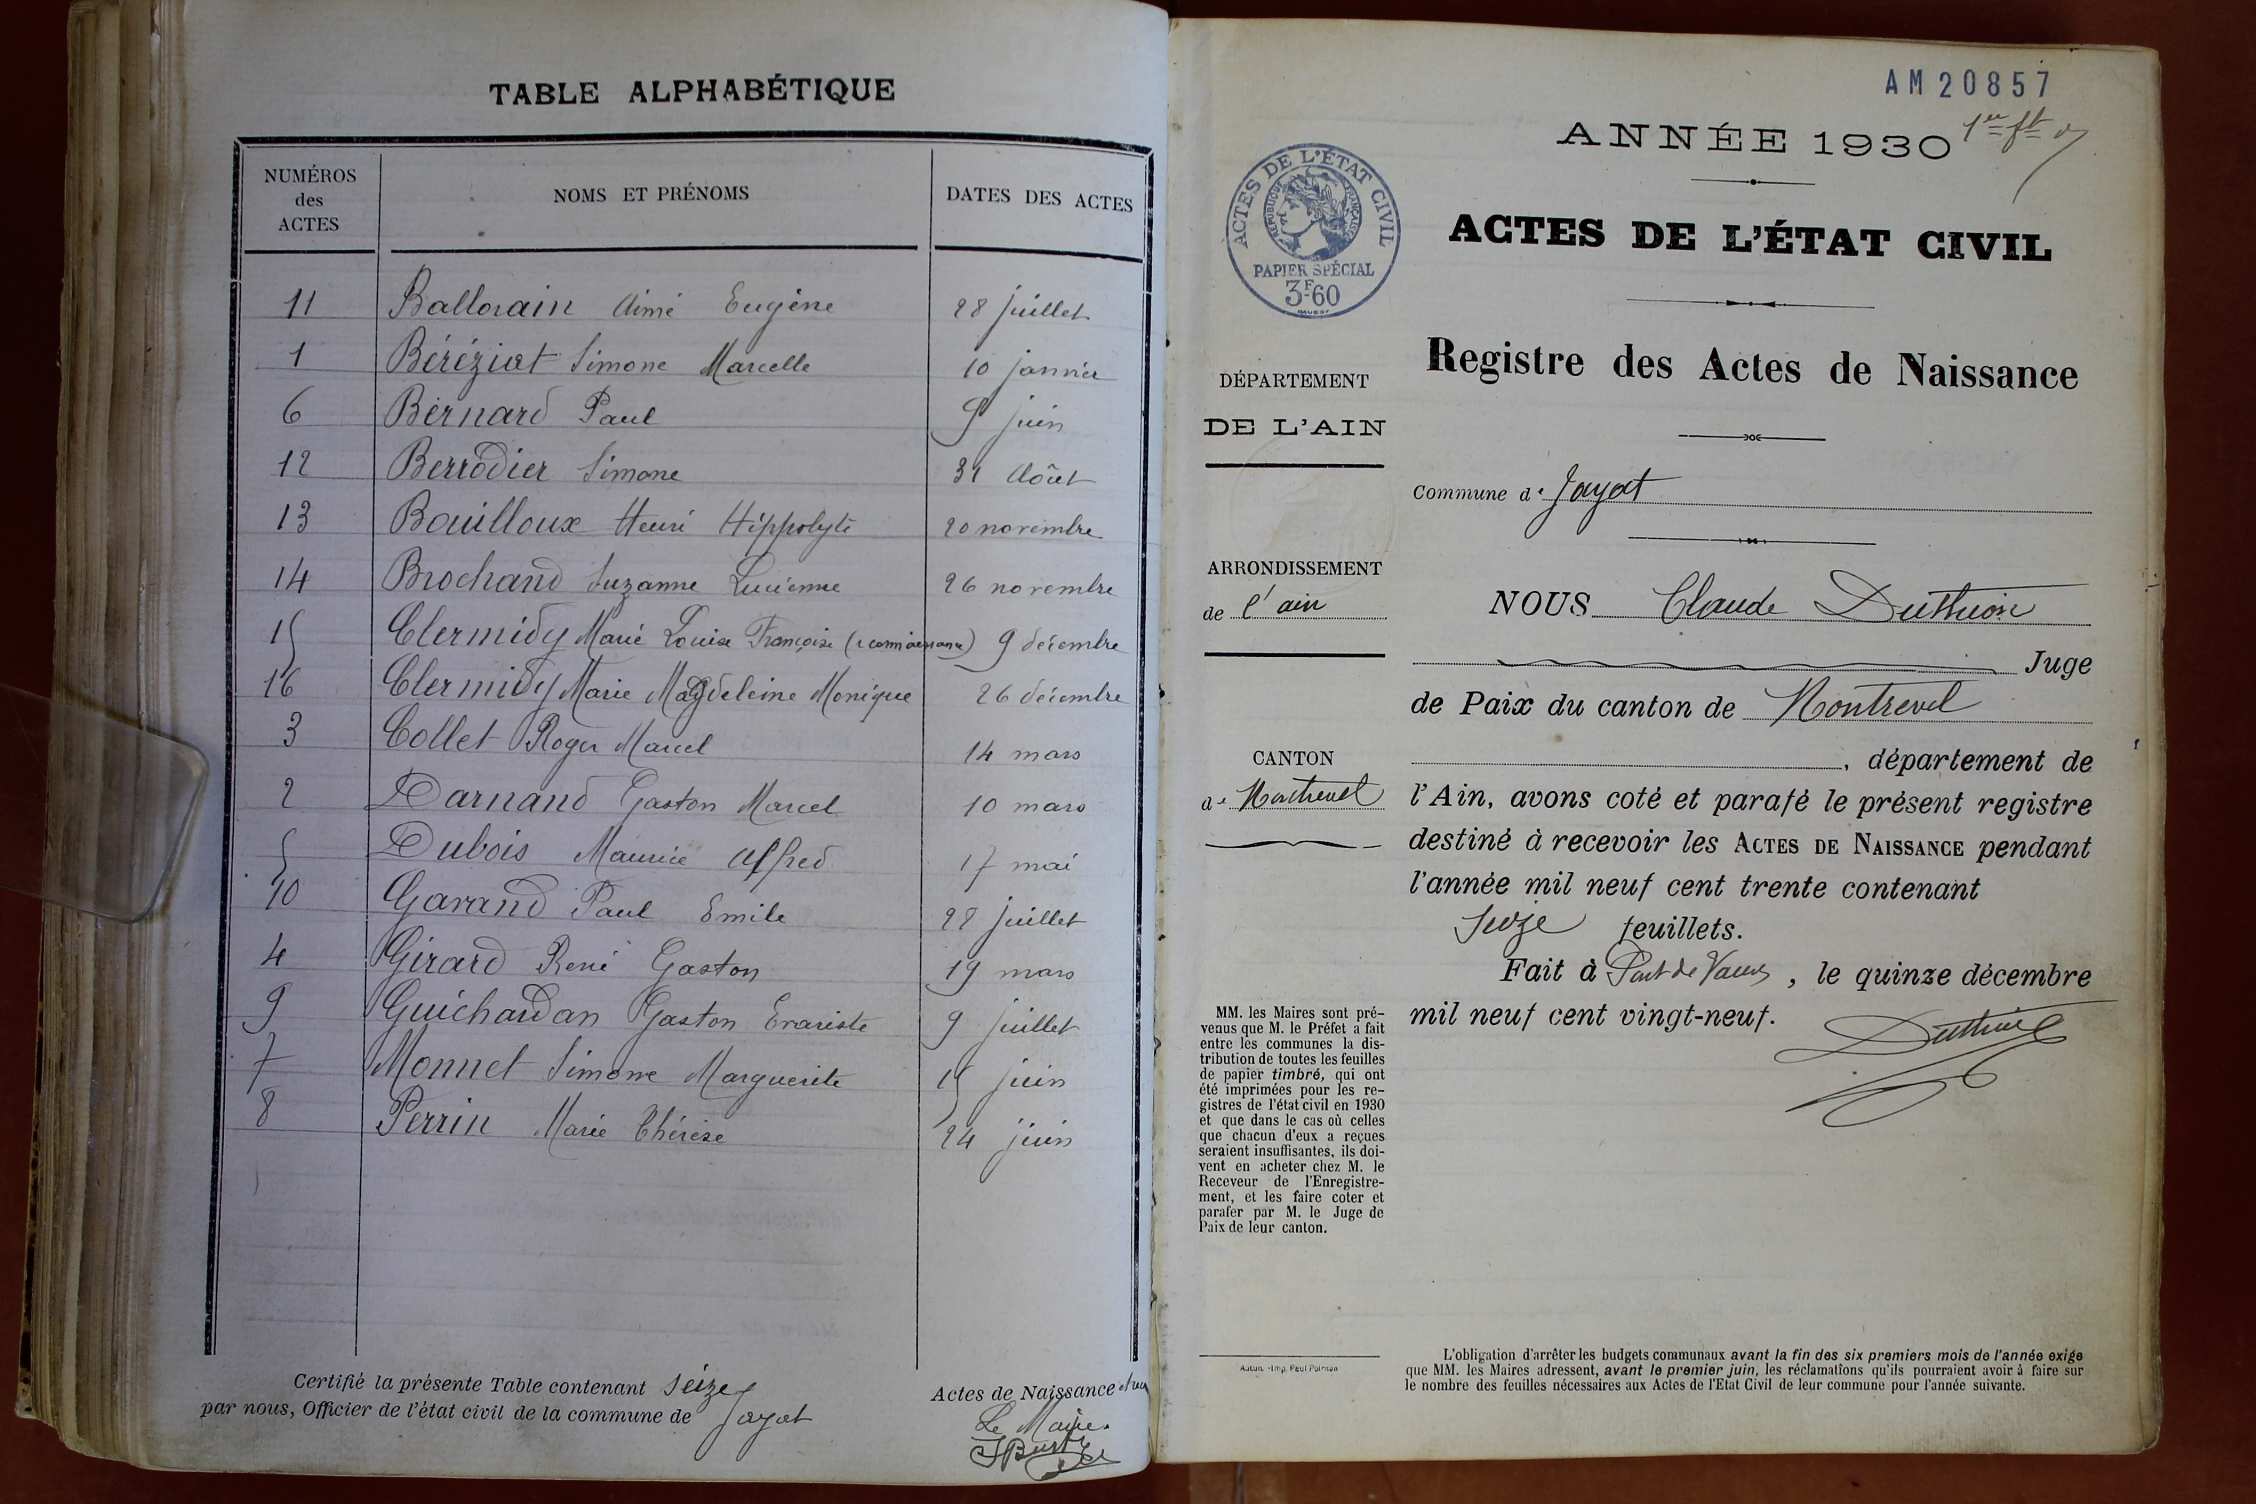 TABLE ALPHABÉTIQUE
NUMÉROS des ACTES
NOMS ET PRÉNOMS
DATES DES ACTES
11 Ballorain Aimé Eugène 28 juillet
1 Béréziat Simone Marcelle 10 janvier
6 Bernard Paul 9 juin
12 Berrodier Simone 31 Août
13 Bouilloux Henri Hippolyte 20 novembre
14 Brochand Suzanne Lucienne 26 novembre
15 Clermidy Marie Louise Françoise (reconnaissance) 9 décembre
16 Clermidy Marie Magdeleine Monique 26 décembre
3 Collet Roger Marcel 14 mars
2 Darnand Gaston Marcel 10 mars
5 Dubois Maurice Alfred 17 mai
10 Garand Paul Emile 28 juillet
4 Girard René Gaston 19 mars
9 Guichardan Gaston Evariste 9 juillet
7 Monnet Simone Marguerite 15 juin
8 Perrin Marie Thérèse 24 juin
Certifié la présente Table contenant seize Actes de Naissance
par nous, Officier de l'état civil de la commune de Jayat
Le Maire
AM 20857
ANNÉE 1930
1er ft
ACTES DE L'ÉTAT CIVIL
RÉPUBLIQUE FRANÇAISE
PAPIER SPÉCIAL
3F60
ACTES DE L'ÉTAT CIVIL
Registre des Actes de Naissance
DÉPARTEMENT
DE L'AIN
Commune de Jayat
ARRONDISSEMENT
de l'ain
CANTON
de Montrevel
NOUS Claude Duthion
Juge
de Paix du canton de Montrevel
, département de
l'Ain, avons coté et parafé le présent registre
destiné à recevoir les ACTES DE NAISSANCE pendant
l'année mil neuf cent trente contenant
seize feuillets.
Fait à Pont de Vaux, le quinze décembre
mil neuf cent vingt-neuf.
MM. les Maires sont pré-
venus que M. le Préfet a fait
entre les communes la dis-
tribution de toutes les feuilles
de papier timbré, qui ont
été imprimées pour les re-
gistres de l'état civil en 1930
et que dans le cas où celles
que chacun d'eux a reçues
seraient insuffisantes, ils doi-
vent en acheter chez M. le
Receveur de l'Enregistre-
ment, et les faire coter et
parafer par M. le Juge de
Paix de leur canton.
Autun. - Imp. Paul Poirson
L'obligation d'arrêter les budgets communaux avant la fin des six premiers mois de l'année exige
que MM. les Maires adressent, avant le premier juin, les réclamations qu'ils pourraient avoir à faire sur
le nombre des feuilles nécessaires aux Actes de l'Etat Civil de leur commune pour l'année suivante.